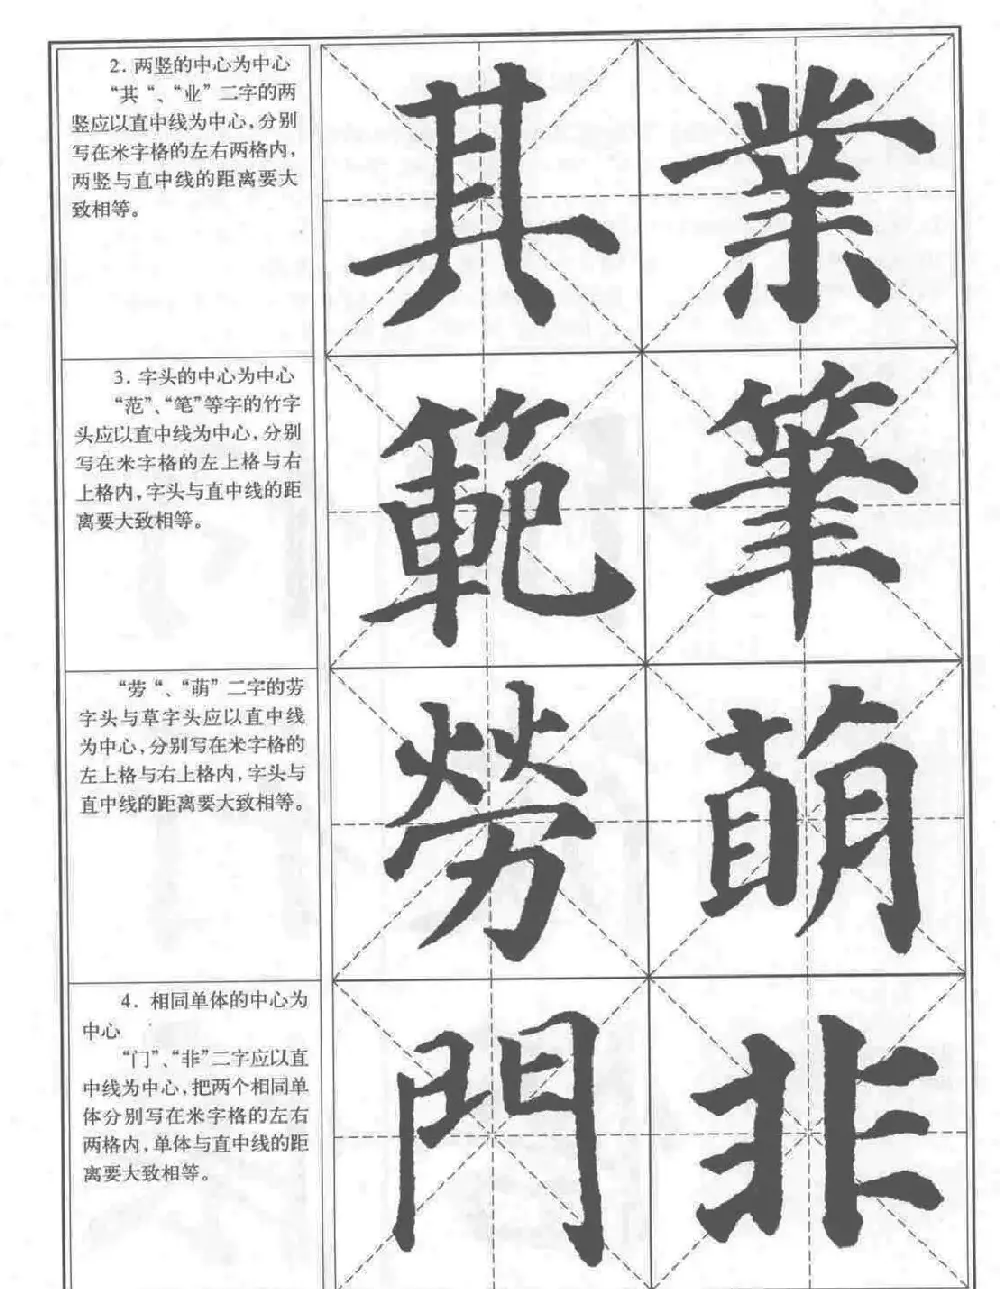 2. 两竖的中心为中心
“其“、“业”二字的两
竖应以直中线为中心,分别
写在米字格的左右两格内,
两竖与直中线的距离要大
致相等。
其 業
3. 字头的中心为中心
“范”、“笔”等字的竹字
头应以直中线为中心,分别
写在米字格的左上格与右
上格内,字头与直中线的距
离要大致相等。
範 筆
“劳“、“萌”二字的劳
字头与草字头应以直中线
为中心,分别写在米字格的
左上格与右上格内,字头与
直中线的距离要大致相等。
勞 萌
4. 相同单体的中心为
中心
“门”、“非”二字应以直
中线为中心,把两个相同单
体分别写在米字格的左右
两格内,单体与直中线的距
离要大致相等。
門 非